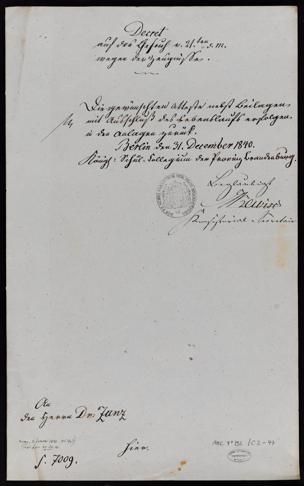 Decret
auf das Gesuch v. 21ten d. M.
wegen der Zeugnisse.
Die gewünschten Atteste nebst Beilagen
mit Ausschluß des Lebenslaufs erfolgen
in den Anlagen zurück.
Berlin den 31. December 1840.
Königl. Schul-Collegium der Provinz Brandenburg.
Beglaubigt
Secretair
An
den Herrn Dr. Zunz
hier.
S. 7009.
ARC 4° 792 / C2-